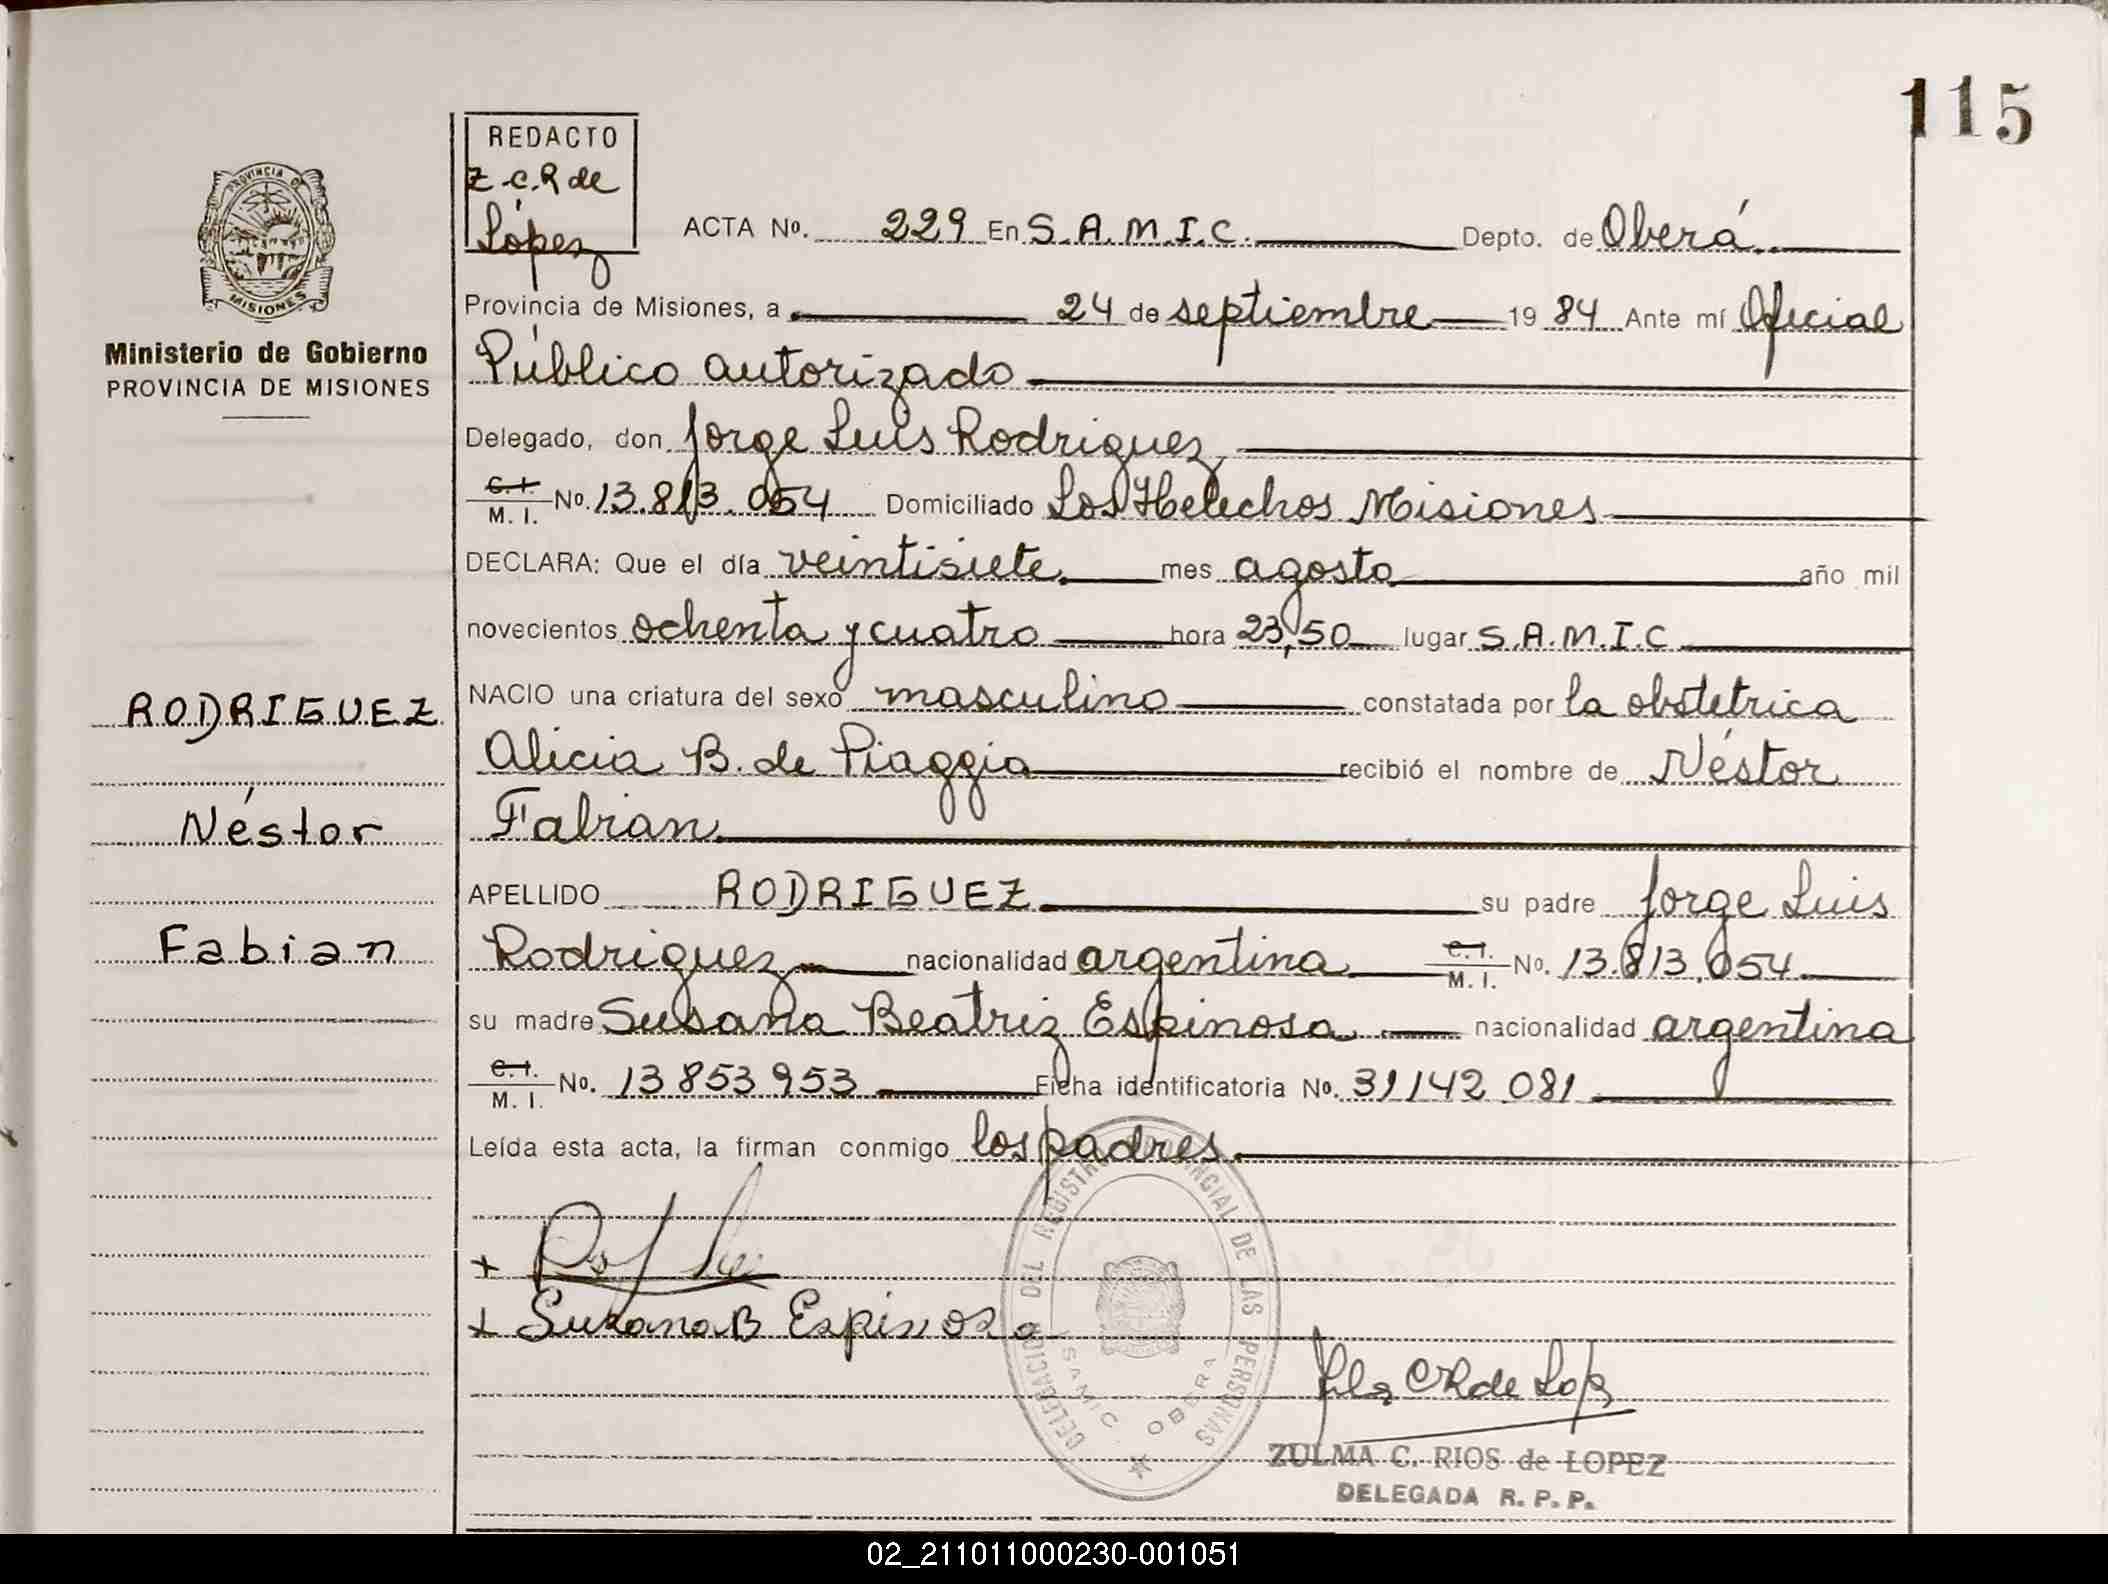 115
REDACTO
Z.C.R de
López
PROVINCIA DE
MISIONES
Ministerio de Gobierno
PROVINCIA DE MISIONES
ACTA No. 229 En S.A.M.I.C. Depto. de Oberá
Provincia de Misiones, a 24 de septiembre 19 84 Ante mí Oficial
Público autorizado
Delegado, don Jorge Luis Rodriguez
C. I.
M. I. No. 13.813.054 Domiciliado Los Helechos Misiones
DECLARA: Que el día veintisiete mes agosto año mil
novecientos ochenta y cuatro hora 23,50 lugar S.A.M.I.C
NACIO una criatura del sexo masculino constatada por la obstetrica
Alicia B. de Piaggia recibió el nombre de Néstor
Fabian
APELLIDO RODRIGUEZ su padre Jorge Luis
Rodriguez nacionalidad argentina C. I.
M. I. No. 13.813.054
su madre Susana Beatriz Espinosa nacionalidad argentina
C. I.
M. I. No. 13853953 Ficha identificatoria No. 31142 081
Leída esta acta, la firman conmigo los padres
RODRIGUEZ
Néstor
Fabian
+
+ Susana B Espinosa
DELEGACION DEL REGISTRO PROVINCIAL DE LAS PERSONAS
SAMIC OBERA
ZULMA C. RIOS de LOPEZ
DELEGADA R. P. P.
02_211011000230-001051